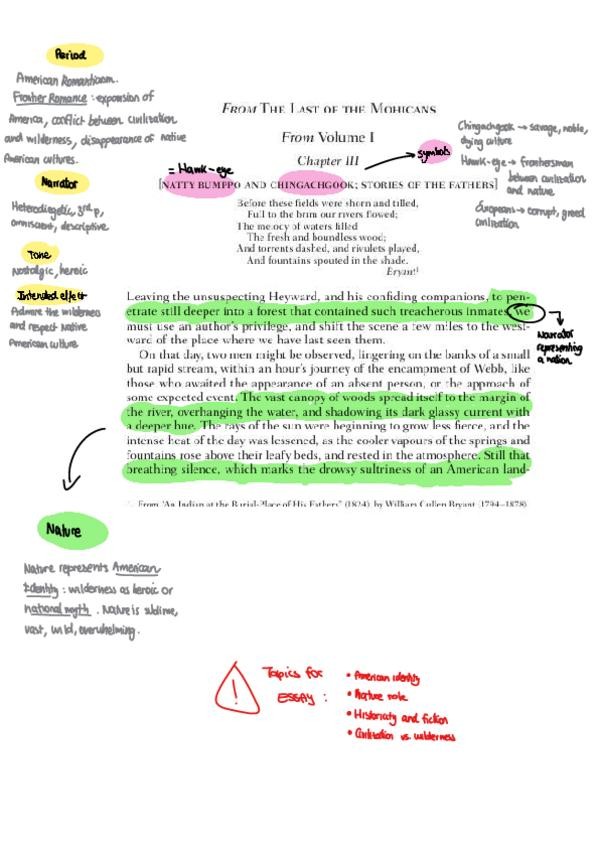 Period
American Romanticism.
Frontier Romance : expansion of
America, conflict between civilization
and wilderness, disappearance of native
American cultures.
Narrator
Heterodiegetic, 3rd p,
omniscient, descriptive.
Tone
Nostalgic, heroic
Intended effect
Admire the wilderness
and respect Native
American culture
FROM THE LAST OF THE MOHICANS
From Volume I
Chapter III
symbols
= Hawk-eye
[NATTY BUMPPO AND CHINGACHGOOK; STORIES OF THE FATHERS]
Chingachgook → savage, noble,
dying culture
Hawk-eye → frontiersman
between civilization
and nature.
Europeans → corrupt, greed
civilization
Before these fields were shorn and tilled,
Full to the brim our rivers flowed;
The melody of waters filled
The fresh and boundless wood;
And torrents dashed, and rivulets played,
And fountains spouted in the shade.
Bryant¹
Leaving the unsuspecting Heyward, and his confiding companions, to pen-
etrate still deeper into a forest that contained such treacherous inmates, we
must use an author's privilege, and shift the scene a few miles to the west-
ward of the place where we have last seen them.
Narrator
representing
a nation
On that day, two men might be observed, lingering on the banks of a small
but rapid stream, within an hour's journey of the encampment of Webb, like
those who awaited the appearance of an absent person, or the approach of
some expected event. The vast canopy of woods spread itself to the margin of
the river, overhanging the water, and shadowing its dark glassy current with
a deeper hue. The rays of the sun were beginning to grow less fierce, and the
intense heat of the day was lessened, as the cooler vapours of the springs and
fountains rose above their leafy beds, and rested in the atmosphere. Still that
breathing silence, which marks the drowsy sultriness of an American land-
From 'An Indian at the Burial-Place of His Fathers" (1824), by William Cullen Bryant (1794–1878).
Nature
Nature represents American
Identity : wilderness as heroic or
national myth. Nature is sublime,
vast, wild, overwhelming.
!
Topics for
ESSAY :
• American identity
• Nature role
• Historicity and fiction
• Civilization vs. wilderness